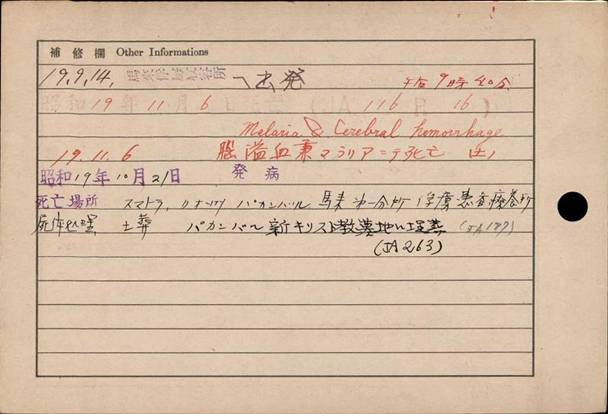 補修欄 Other Informations
19.9.14. へ出発 午后9時40分
昭和19年11月6日死亡 (JA 116 P 16)
Malaria & Cerebral hemorrhage
19.11.6 脳溢血兼マラリアニテ死亡
昭和19年10月21日 発病
死亡場所 スマトラ, パカンバル 馬来第一分所 俘虜患者療養所
屍体処理 土葬 パカンバル新キリスト教墓地ニ埋葬 (JA177)
(JA263)